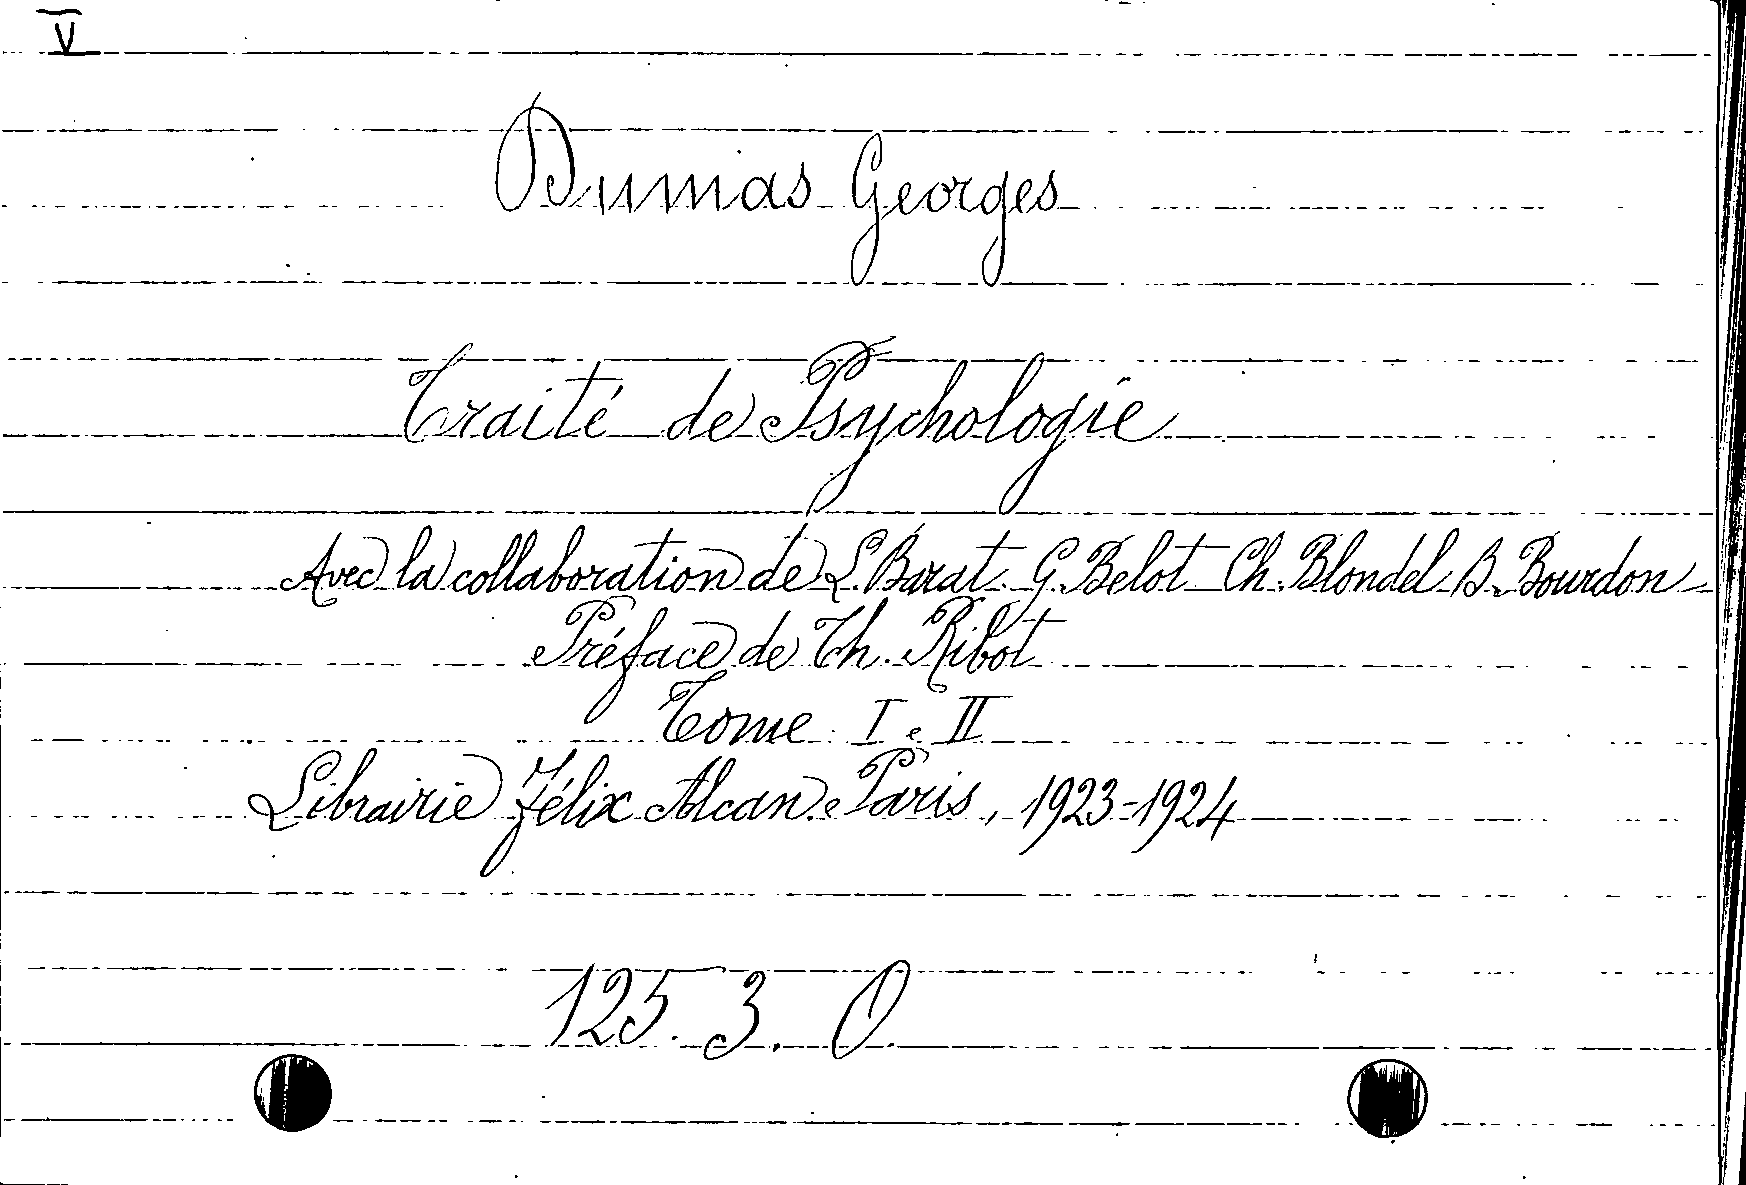 V
Dumas Georges
Traité de Psychologie
Avec la collaboration de L. Barat. G. Belot Ch. Blondel. B. Bourdon
Préface de Th. Ribot
Tome I e II
Librairie Félix Alcan. Paris, 1923-1924
125. 3. O